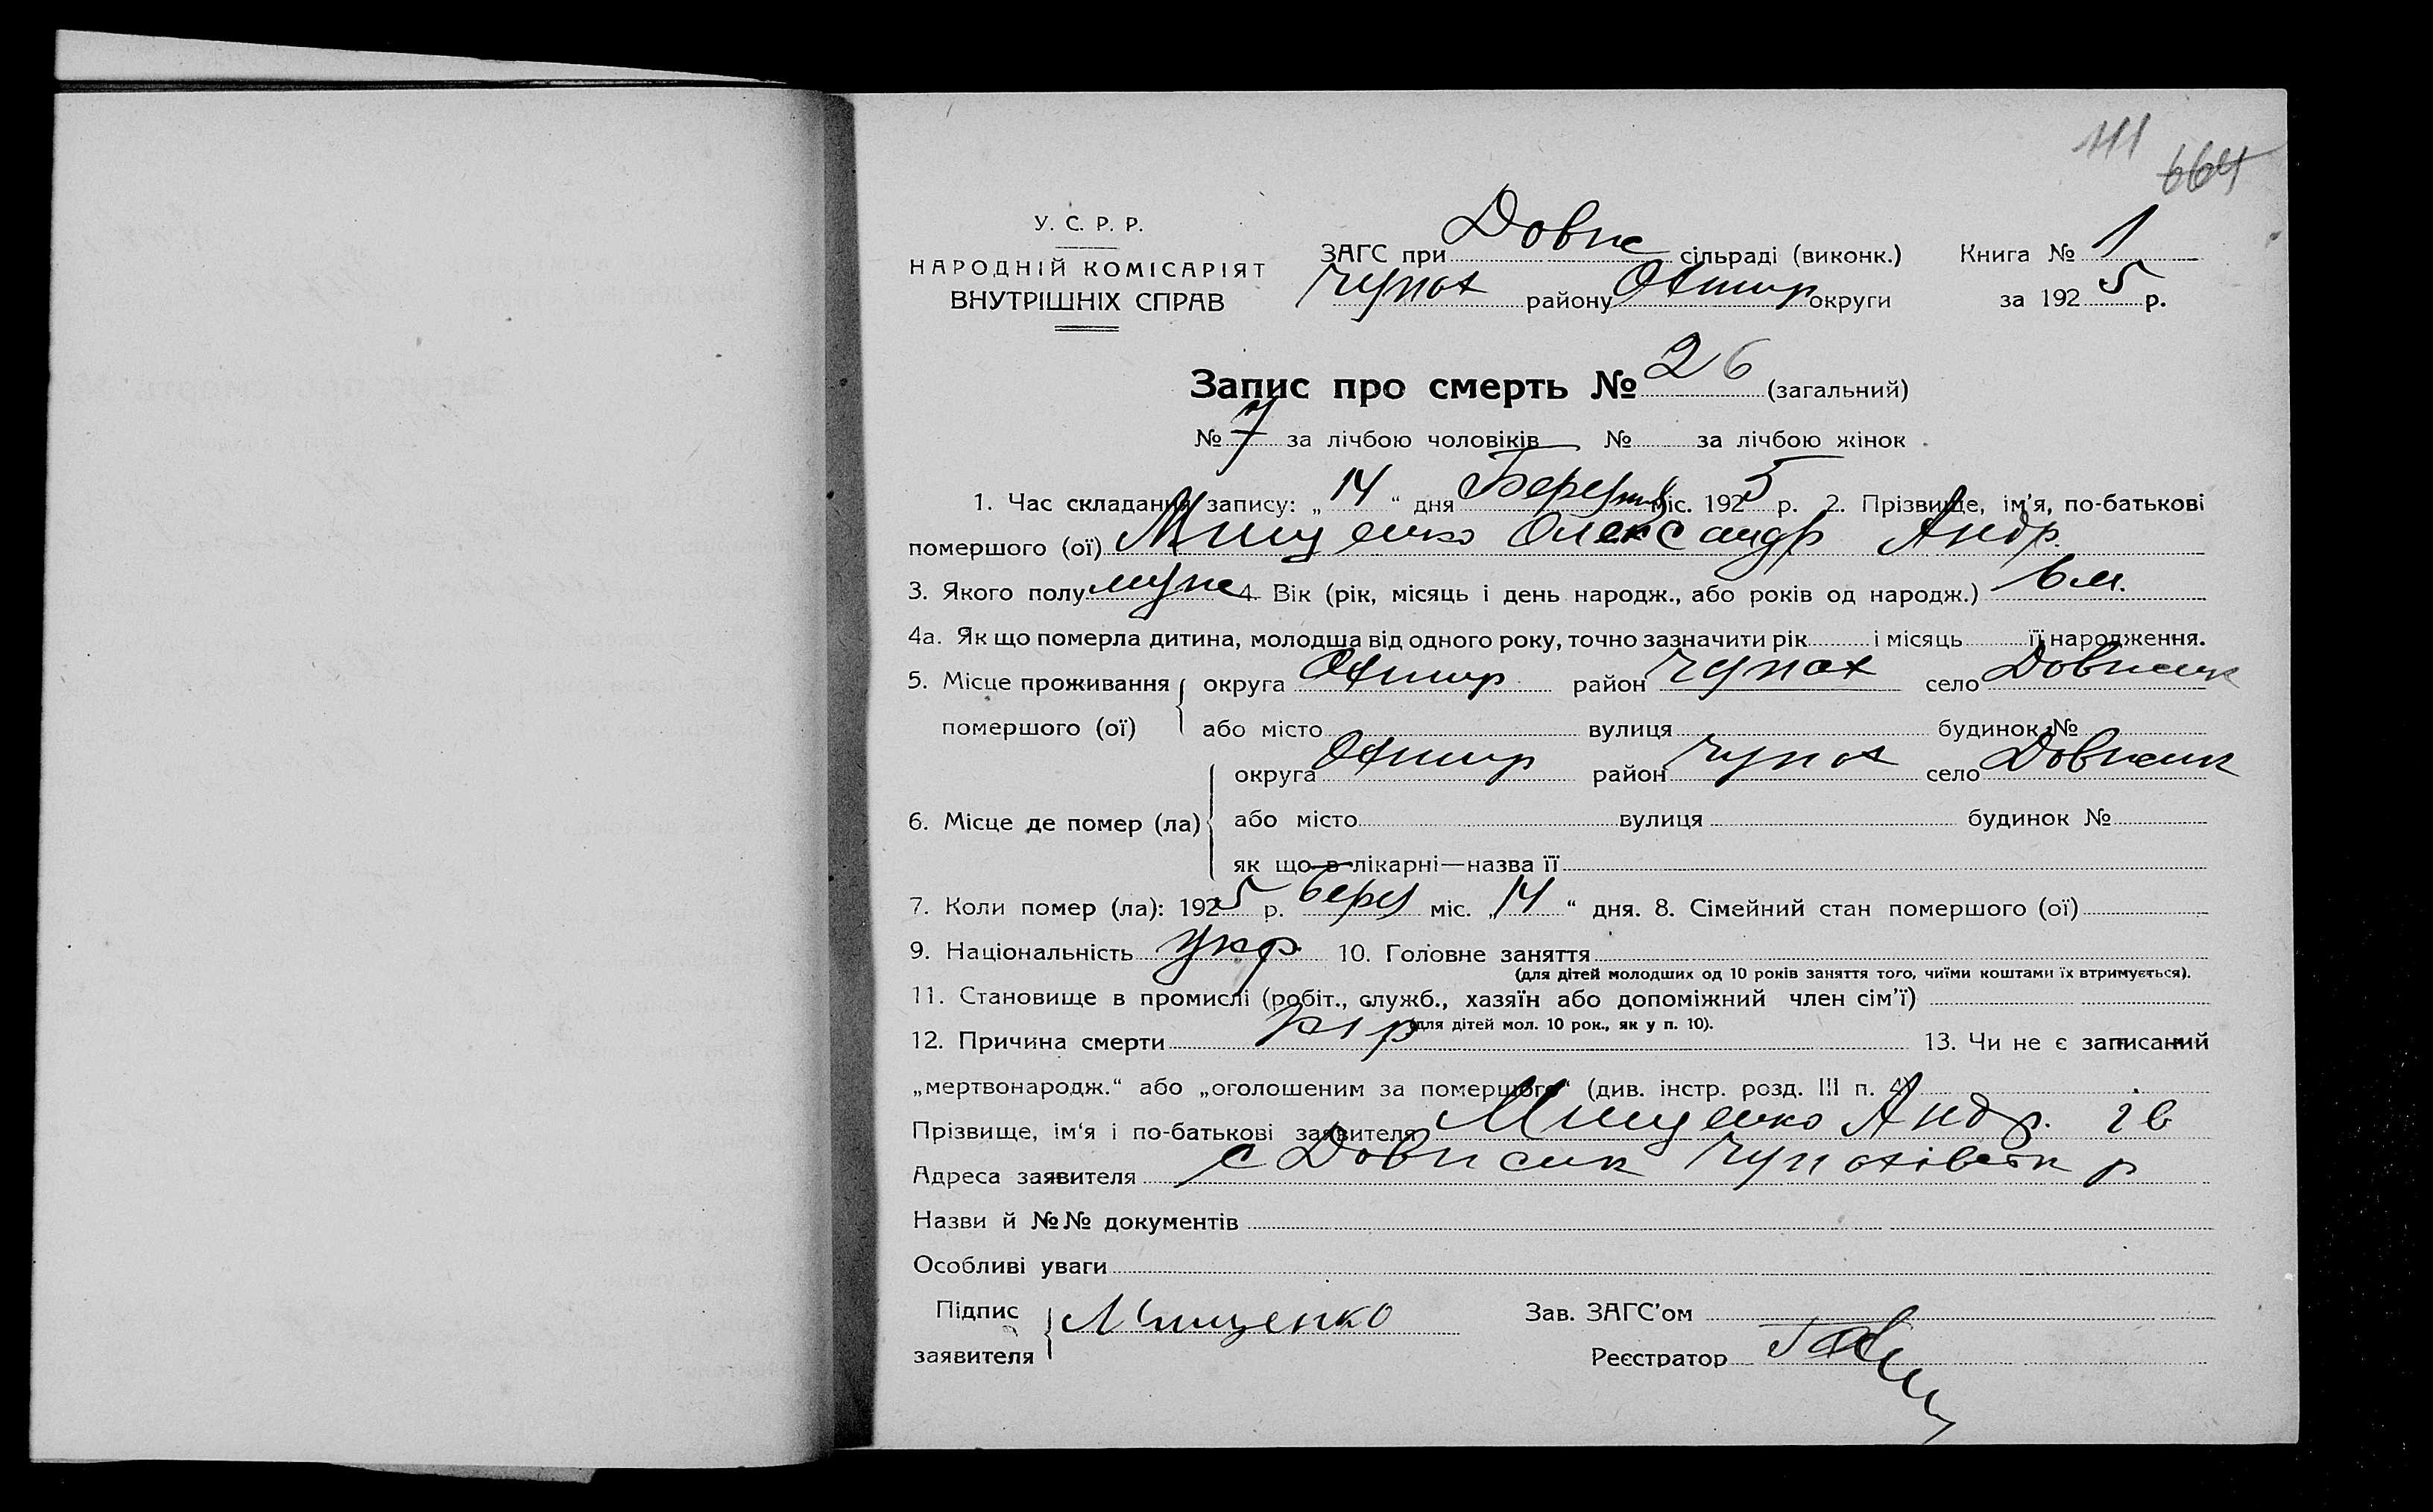 111
664
У. С. Р. Р.
НАРОДНІЙ КОМІСАРІЯТ
ВНУТРІШНІХ СПРАВ
ЗАГС при Довже сільраді (виконк.) Книга № 1
Чупах району Охтир округи за 1925 р.
Запис про смерть № 26 (загальний)
№ 7 за лічбою чоловіків № за лічбою жінок
1. Час складання запису: „14“ дня Березня міс. 1925 р. 2. Прізвище, ім'я, по-батькові
помершого (ої) Мищенко Олександр Андр.
3. Якого полу муже 4. Вік (рік, місяць і день народж., або років од народж.) 6 м.
4а. Як що померла дитина, молодша від одного року, точно зазначити рік і місяць її народження.
5. Місце проживання округа Охтир район Чупах село Довжик
помершого (ої) або місто вулиця будинок №
округа Охтир район Чупах село Довжик
6. Місце де помер (ла) або місто вулиця будинок №
як що в лікарні—назва її
7. Коли помер (ла): 1925 р. Берез міс. „14“ дня. 8. Сімейний стан помершого (ої)
9. Національність Укр 10. Головне заняття
(для дітей молодших од 10 років заняття того, чиїми коштами їх втримується).
11. Становище в промислі (робіт., служб., хазяїн або допоміжний член сім'ї)
(для дітей мол. 10 рок., як у п. 10).
12. Причина смерти кір 13. Чи не є записаний
„мертвонародж.“ або „оголошеним за помершого“ (див. інстр. розд. III п. 4)
Прізвище, ім'я і по-батькові заявителя Мищенко Андр.
Адреса заявителя с Довжик Чупахівськ р
Назви й №№ документів
Особливі уваги
Підпис заявителя Мищенко Зав. ЗАГС'ом
Реєстратор